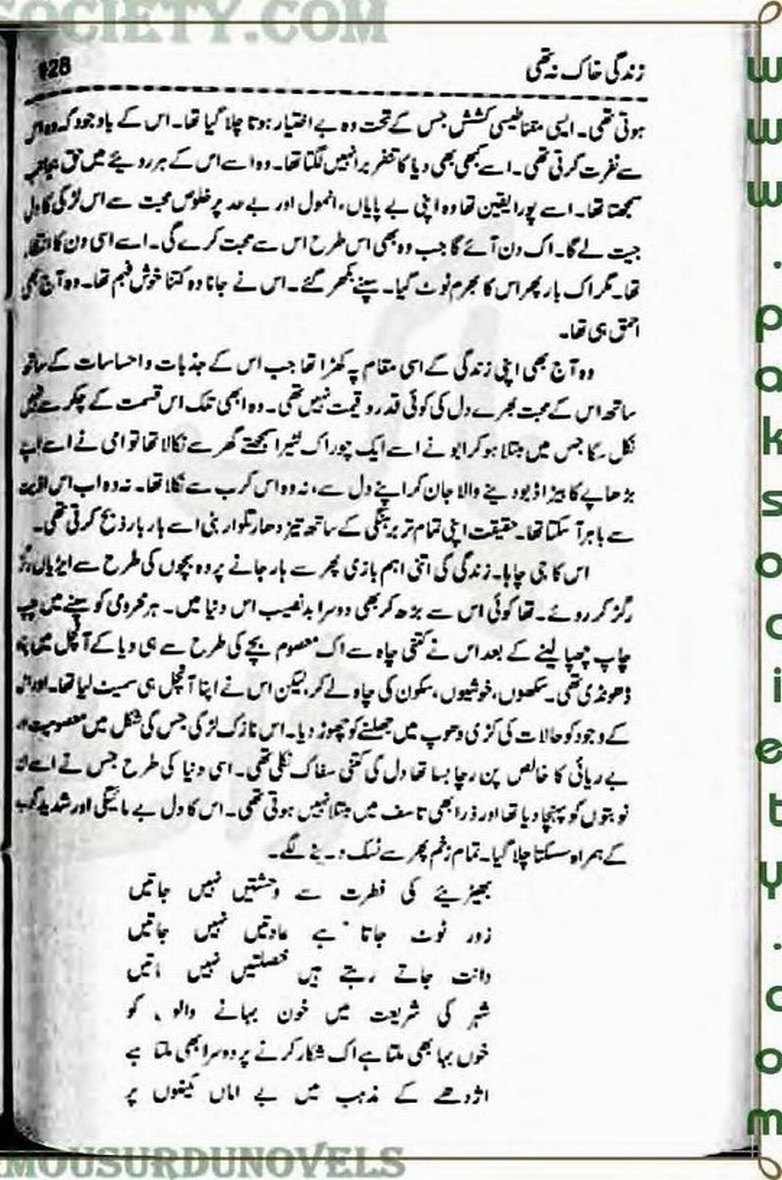 SOCIETY.COM
زندگی خاک نہ تھی
428
ہوتی تھی۔ ایسی مقناطیسی کشش جس کے تحت وہ بے اختیار ہوتا چلا گیا تھا۔ اس کے باوجود کہ وہ اس
سے نفرت کرتی تھی۔ اسے کبھی بھی دیا کا تنفر برا نہیں لگتا تھا۔ وہ اسے اس کے ہر رویئے میں حق بجانب
سمجھتا تھا۔ اسے پورا یقین تھا وہ اپنی بے پایاں، انمول اور بے حد پرخلوص محبت سے اس لڑکی کا دل
جیت لے گا۔ اک دن آئے گا جب وہ بھی اس طرح اس سے محبت کرے گی۔ اسے اسی دن کا انتظار
تھا۔ مگر اک بار پھر اس کا بھرم ٹوٹ گیا۔ سپنے بکھر گئے۔ اس نے جانا وہ کتنا خوش فہم تھا۔ وہ آج بھی
احمق ہی تھا۔
وہ آج بھی اپنی زندگی کے اسی مقام پہ کھڑا تھا جب اس کے جذبات و احساسات کے ساتھ
ساتھ اس کے محبت بھرے دل کی کوئی قدر و قیمت نہیں تھی۔ وہ ابھی تلک اس قسمت کے چکر سے نہیں
نکل سکا جس میں مبتلا ہو کر ابو نے اسے ایک چور اک لٹیرا سمجھتے گھر سے نکالا تھا تو امی نے اسے اپنے
بڑھاپے کا بیڑا ڈبو دینے والا جان کر اپنے دل سے، نہ وہ اس کرب سے نکلا تھا۔ نہ وہ اب اس اذیت
سے باہر آ سکتا تھا۔ حقیقت اپنی تمام تر برہنگی کے ساتھ تیز دھار تلوار بنی اسے بار بار ذبح کرتی تھی۔
اس کا جی چاہا۔ زندگی کی اتنی اہم بازی پھر سے ہار جانے پر وہ بچوں کی طرح سے ایڑیاں رگڑ
رگڑ کر روئے۔ تھا کوئی اس سے بڑھ کر بھی دوسرا بدنصیب اس دنیا میں۔ ہر محرومی کو سینے میں چپ
چاپ چھپا لینے کے بعد اس نے کتنی چاہ سے اک معصوم بچے کی طرح سے ہی دیا کے آنچل میں پناہ
ڈھونڈی تھی۔ سکھوں، خوشیوں، سکون کی چاہ لے کر لیکن اس نے اپنا آنچل ہی سمیٹ لیا تھا۔ اور اس
کے وجود کو حالات کی کڑی دھوپ میں جھلسنے کو چھوڑ دیا۔ اس نازک لڑکی جس کی شکل میں معصومیت اور
بے ریائی کا خالص پن رچا بسا تھا دل کی کتنی سفاک نکلی تھی۔ اسی دنیا کی طرح جس نے اسے ان
نوبتوں کو پہنچا دیا تھا اور ذرا بھی تاسف میں مبتلا نہیں ہوتی تھی۔ اس کا دل بے مائیگی اور شدید کرب
کے ہمراہ سسکتا چلا گیا۔ تمام زخم پھر سے ٹسک دینے لگے۔
بھیڑیئے کی فطرت سے وحشتیں نہیں جاتیں
زور ٹوٹ جاتا ہے عادتیں نہیں جاتیں
دانت جاتے رہتے ہیں خصلتیں نہیں جاتیں
شہر کی شریعت میں خون بہانے والوں کو
خوں بہا بھی ملتا ہے اک شکار کرنے پر دوسرا بھی ملتا ہے
اژدھے کے مذہب میں بے اماں کینوں پر
www.paksociety.com
MOUSURDUNOVELS